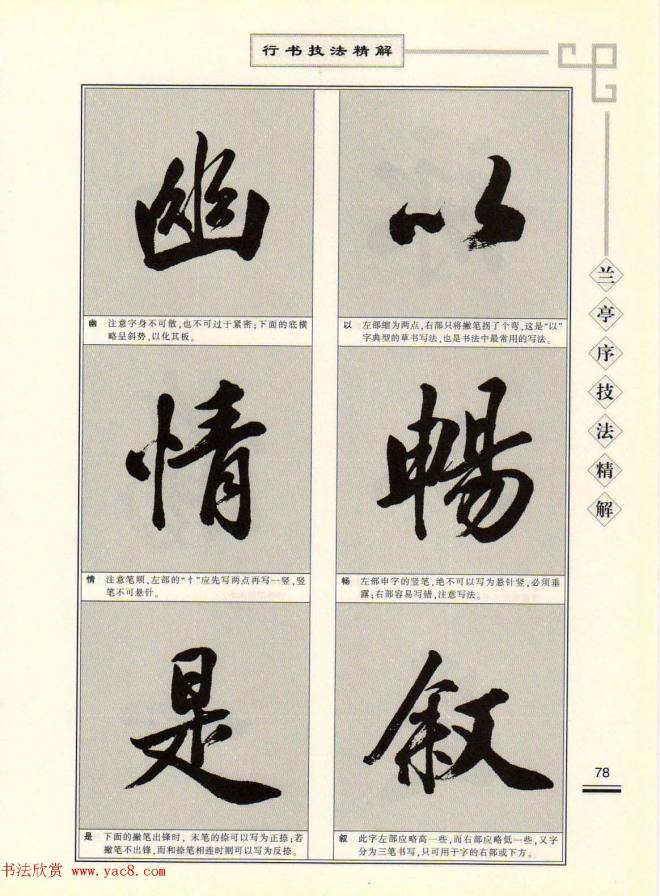 行书技法精解
幽
幽 注意字身不可散,也不可过于紧密;下面的底横
略呈斜势,以化其板。
以
以 左部缩为两点,右部只将撇笔拐了个弯,这是“以”
字典型的草书写法,也是书法中最常用的写法。
情
情 注意笔顺,左部的“忄”应先写两点再写一竖,竖
笔不可悬针。
暢
畅 左部申字的竖笔,绝不可以写为悬针竖,必须垂
露;右部容易写错,注意写法。
是
是 下面的撇笔出锋时,末笔的捺可以写为正捺;若
撇笔不出锋,而和捺笔相连时则可以写为反捺。
叙
叙 此字左部应略高一些,而右部应略低一些,又字
分为三笔书写,只可用于字的右部或下方。
兰亭序技法精解
78
书法欣赏 www.yac8.com